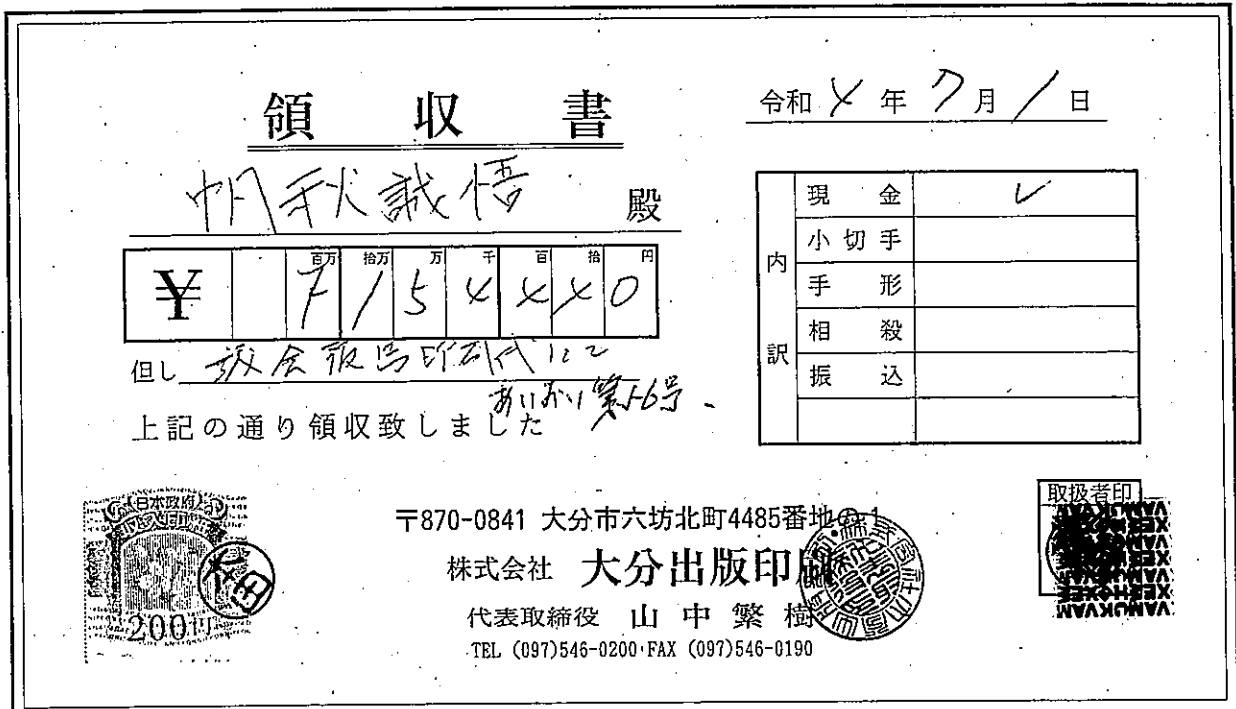 領収書
令和 4 年 7 月 1 日
帆秋誠悟 殿
¥ 百万 拾万 万 千 百 拾 円
¥ 1 5 4 4 4 0
但し 印刷代
第56号
上記の通り領収致しました
内訳
現金 レ
小切手
手形
相殺
振込
日本政府
200円
〒870-0841 大分市六坊北町4485番地の1
株式会社 大分出版印刷
代表取締役 山中繁樹
TEL (097)546-0200・FAX (097)546-0190
取扱者印